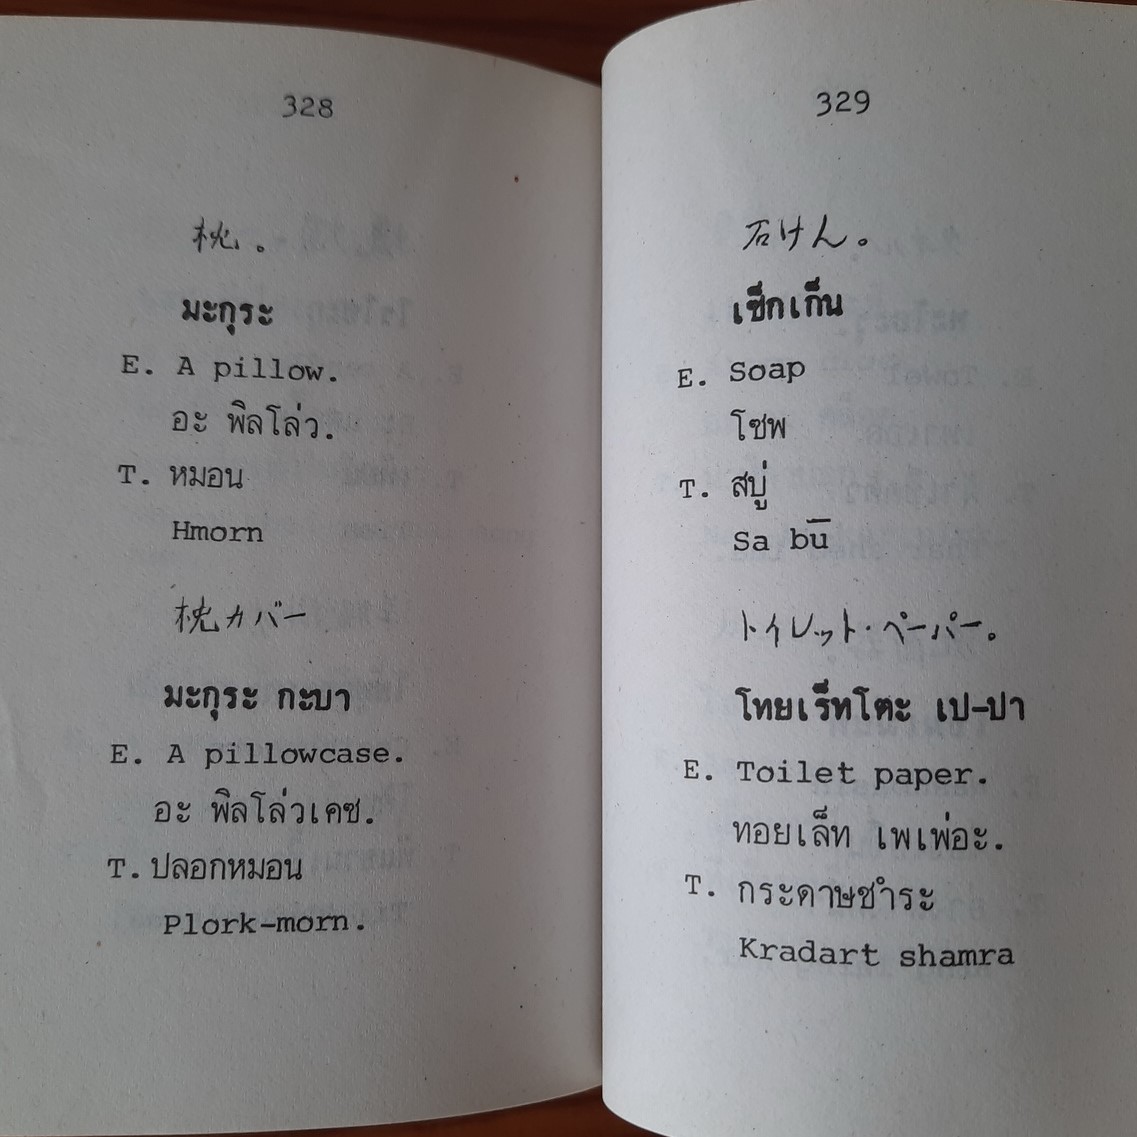 328
枕。
มะกุระ
E. A pillow.
อะ พิลโล่ว.
T. หมอน
Hmorn
枕カバー
มะกุระ กะบา
E. A pillowcase.
อะ พิลโล่วเคซ.
T. ปลอกหมอน
Plork-morn.
329
石けん。
เซ็กเก็น
E. Soap
โซพ
T. สบู่
Sa bū
トイレット・ペーパー。
โทยเร็ทโตะ เป-ปา
E. Toilet paper.
ทอยเล็ท เพเพ่อะ.
T. กระดาษชำระ
Kradart shamra